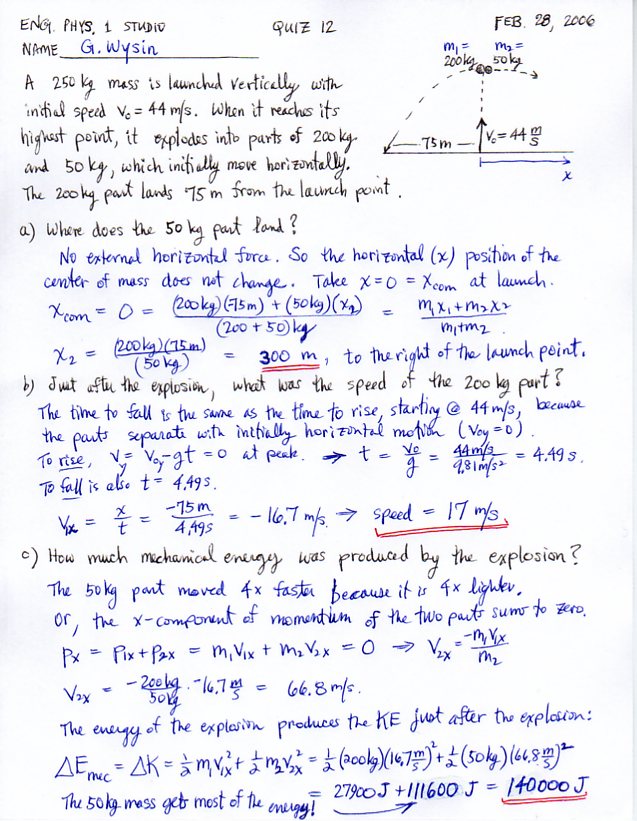 ENG. PHYS. 1 STUDIO QUIZ 12 FEB. 28, 2006
NAME G. Wysin
m₁ = 200kg m₂ = 50kg
75m
V₀ = 44 m/s
x
A 250 kg mass is launched vertically with
initial speed V₀ = 44 m/s. When it reaches its
highest point, it explodes into parts of 200 kg
and 50 kg, which initially move horizontally.
The 200 kg part lands 75 m from the launch point.
a) Where does the 50 kg part land?
No external horizontal force. So the horizontal (x) position of the
center of mass does not change. Take x=0 = Xcom at launch.
Xcom = 0 = (200kg)(-75m) + (50kg)(x₂) / (200 + 50)kg = m₁x₁+m₂x₂ / m₁+m₂
x₂ = (200kg)(75m) / (50kg) = 300 m, to the right of the launch point.
b) Just after the explosion, what was the speed of the 200 kg part?
The time to fall is the same as the time to rise, starting @ 44 m/s, because
the parts separate with initially horizontal motion (Voy=0).
To rise, Vy = Voy-gt = 0 at peak. → t = V₀/g = 44m/s / 9.81m/s² = 4.49 s.
To fall is also t = 4.49s.
V₁x = x/t = -75m / 4.49s = -16.7 m/s → speed = 17 m/s.
c) How much mechanical energy was produced by the explosion?
The 50kg part moved 4x faster because it is 4x lighter.
Or, the x-component of momentum of the two parts sums to zero.
Px = P1x+P2x = m₁V1x + m₂V2x = 0 ⇒ V2x = -m₁V1x / m₂
V2x = -200kg / 50kg · -16.7 m/s = 66.8 m/s.
The energy of the explosion produces the KE just after the explosion:
ΔEmec = ΔK = ½ m₁V1x² + ½ m₂V2x² = ½ (200kg)(16.7 m/s)² + ½ (50kg)(66.8 m/s)²
= 27900 J + 111600 J = 140000 J
The 50kg mass gets most of the energy!